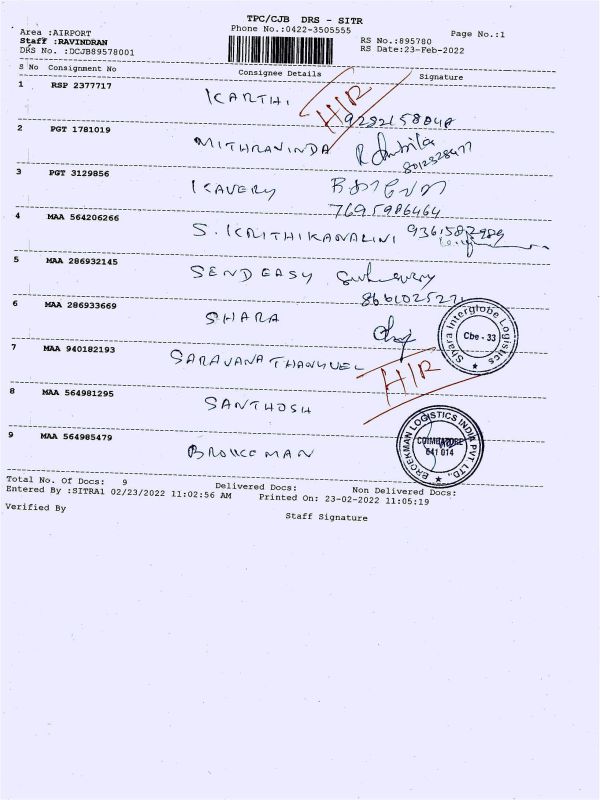 TPC/CJB DRS - SITR
Area :AIRPORT
Phone No.:0422-3505555
Page No.:1
Staff :RAVINDRAN
RS No.:895780
DRS No. :DCJB89578001
RS Date:23-Feb-2022
S No Consignment No Consignee Details Signature
1 RSP 2377717 KARTHI HIR
2 PGT 1781019 MITHRAVINDA
3 PGT 3129856 KAVERY
7695986464
4 MAA 564206266 S. KRITHIKANALINI
5 MAA 286932145 SENDEASY
6 MAA 286933669 SHARA
Shara Interglobe Logistics
Cbe - 33
7 MAA 940182193 SARAVANA THANGVEL HIR
8 MAA 564981295 SANTHOSH
9 MAA 564985479 BROUCEMAN
BROEKMAN LOGISTICS INDIA PVT. LTD.,
COIMBATORE
641 014
Total No. Of Docs: 9 Delivered Docs: Non Delivered Docs:
Entered By :SITRA1 02/23/2022 11:02:56 AM Printed On: 23-02-2022 11:05:19
Verified By
Staff Signature